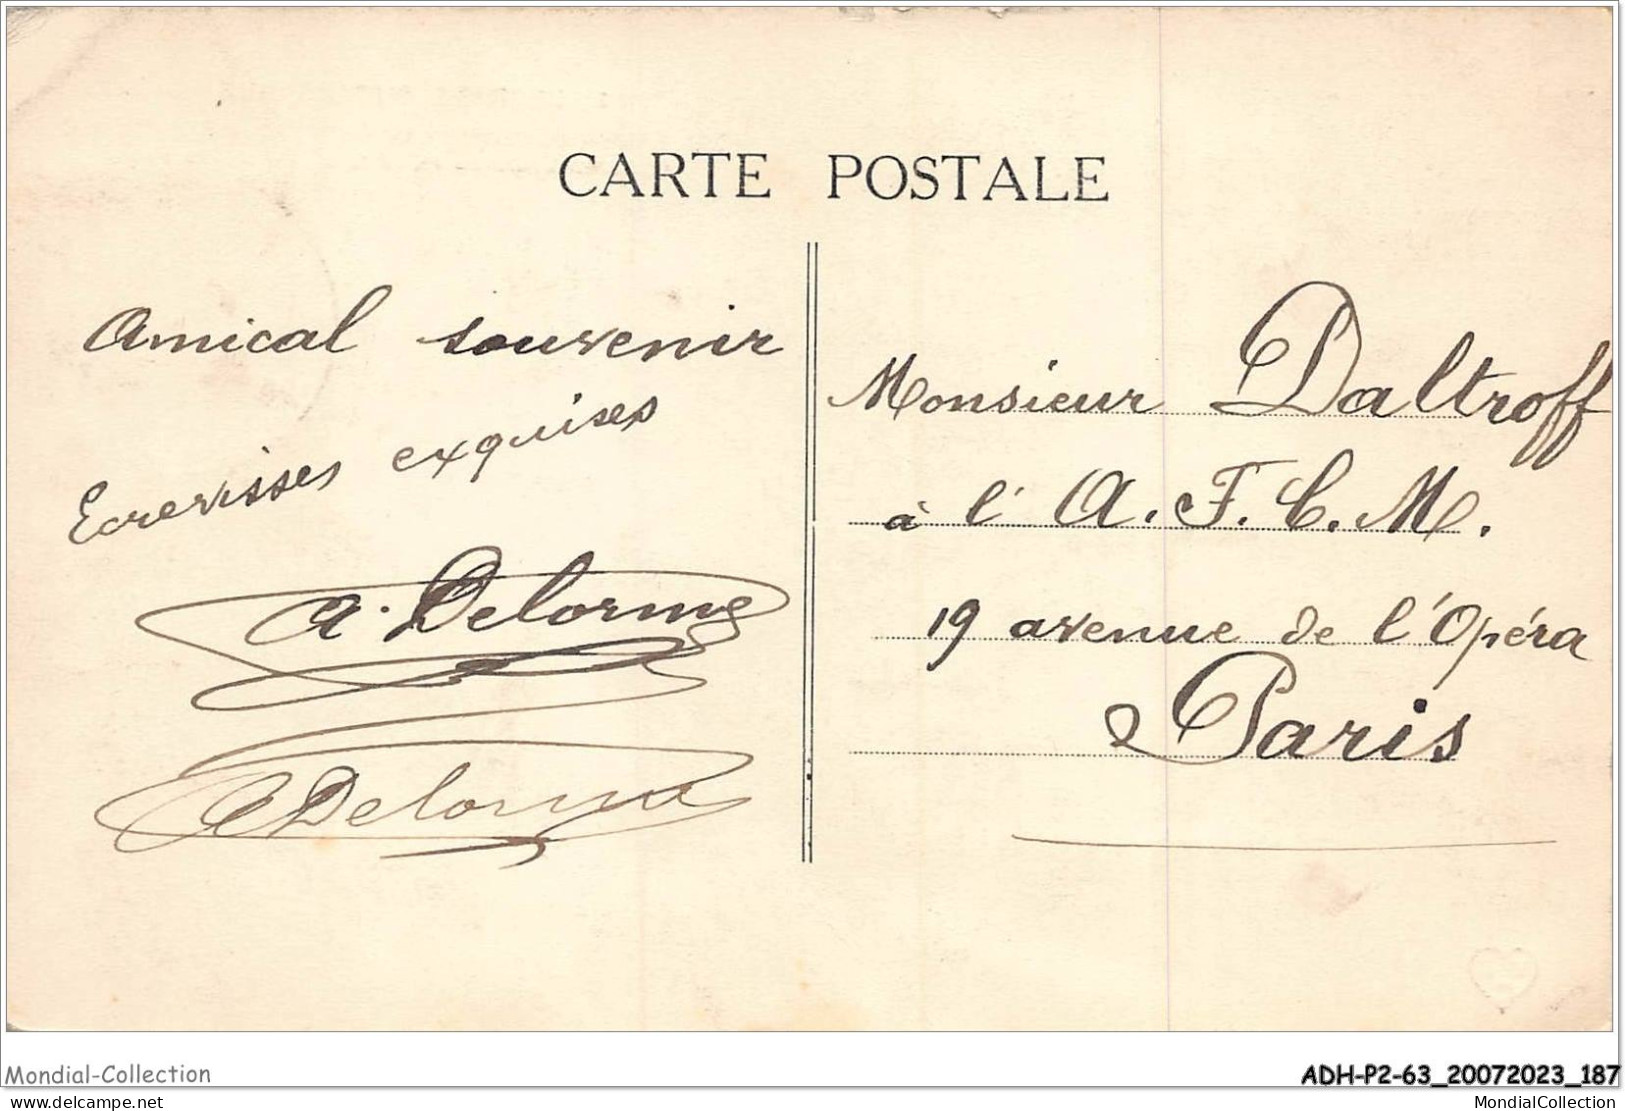 CARTE POSTALE
Amical souvenir
Ecrevisses exquises
A. Delorme
A Delorme
Monsieur Daltroff
à l' A. F. C. M.
19 avenue de l'Opéra
Paris
Mondial-Collection
ADH-P2-63_20072023_187
www.delcampe.net
MondialCollection